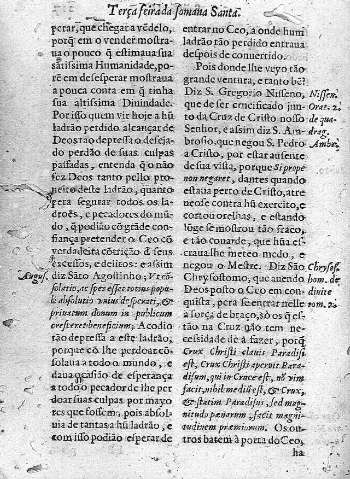 Terça feira da somana Santa.
perar, que chegar a vẽdelo,
porq̃ em o vender mostra-
ua o pouco q̃ estimaua sua
sãtissima Humanidade, po-
rẽ em desesperar mostraua
a pouca conta em q̃ tinha
sua altissima Diuindade.
Por isso quem vir hoje a hũ
ladrão perdido alcançar de
Deos tão depressa o deseja-
do perdão de suas culpas
passadas, entenda q̃ o não
fez Deos tanto pello pro-
ueito deste ladrão, quanto
pera segurar todos os la-
droẽs, e pecadores do mũ-
do, q̃ podião cõ grãde con-
fiança pretender o Ceo cõ
verdadeira cõtrição d seus
excessos, e delitos: e assim
Augus.
diz Sãto Agostinho;
solatio, et spes esset totius popu-
li absolutio vnius desperati, &
priuatum donum in publicum
cresteret beneficium; Acodio
tão depressa a este ladrão,
porque cõ lhe perdoar cõ-
solaua a todo o mundo, e
daua ocasião de esperança
a todo o pecador de lhe per-
doar suas culpas por mayo
res que fossem, pois absol-
uia de tantas a hũ ladrão, e
com isso podião esperar de
entrar no Ceo, a onde hum
ladrão tão perdido entraua
despois de conuertido.
Pois donde lhe veyo tão
grande ventura, e tanto bẽ?
Diz S. Gregorio Nisseno,
Nissen.
que de ser crucificado jun-
Orat. 2.
to da Cruz de Cristo nosso
de qua-
Senhor, e assim diz S. Am-
drag.
brosio, que negou S. Pedro
Ambro.
a Cristo, por estar ausente
de sua vista, porque Si prope
non negaret, dantes quando
estaua perto de Cristo, atre
neose contra hũ exercito, e
cortou orelhas, e estando
lõge se mostrou tão fraco,
e tão couarde, que hũa es-
craua lhe meteo medo, e
negou o Mestre. Diz São
Chrysos.
Chrysostomo, que auendo
hom. de
Deos posto o Ceo em con-
diuite
quista, pera se entrar nelle
tom. 2.
a força de braço, só os q̃ es-
tão na Cruz não tem ne-
cessidade de a fazer, porq̃
Crux Christi clauis Paradisi
est, Crux Christi aperuit Para-
disum, qui in Cruce est, nõ vim
facit, nihil medij est, & Crux,
& statim Paradisus, sed mag-
nitudo pœnarum, facit magni-
tudinem præmiorum. Os ou-
tros batem á porta do Ceo,
ha